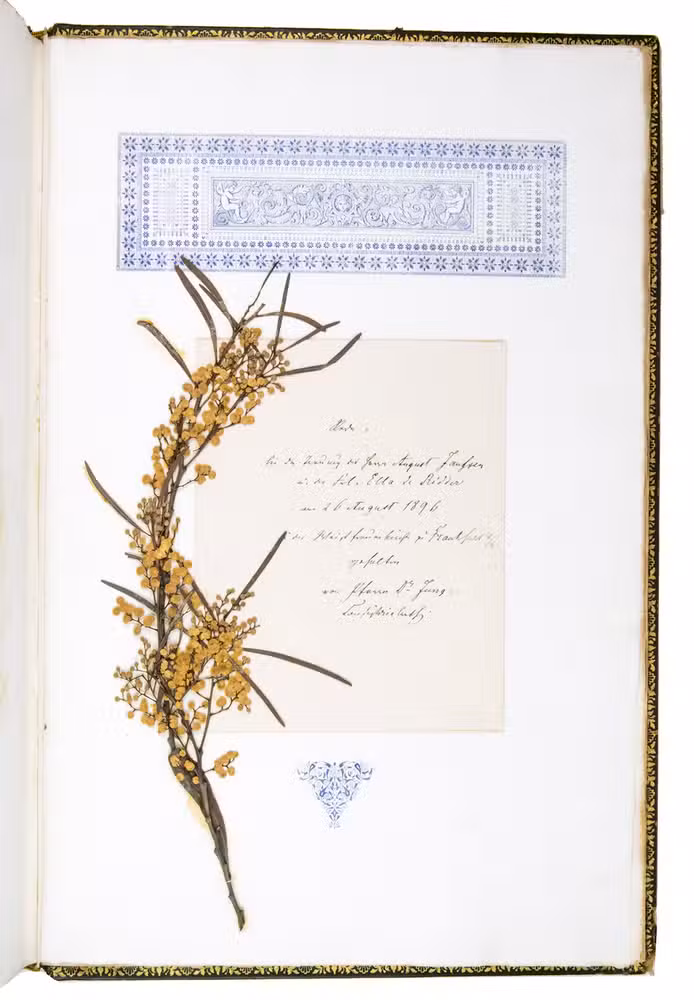 Rede
bei der Trauung des Herrn August Janssen
u. der Frl. Ella de Ridder
am 26 August 1896
in der Weissfrauenkirche zu Frankfurt a/M
gehalten
von Pfarrer Dr. Jung